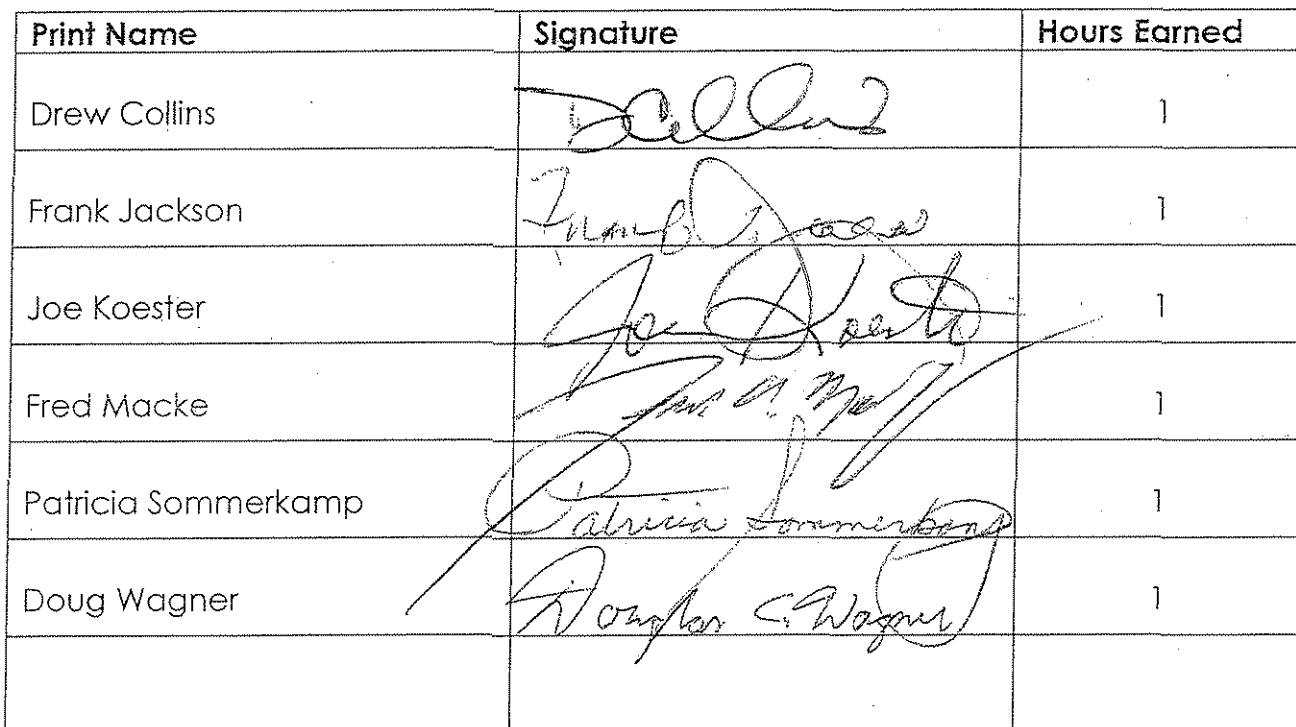 Print Name Signature Hours Earned
Drew Collins DCollins 1
Frank Jackson Frank 1
Joe Koester Joe Koester 1
Fred Macke Fred 1
Patricia Sommerkamp Patricia Sommerkamp 1
Doug Wagner Douglas C. Wagner 1